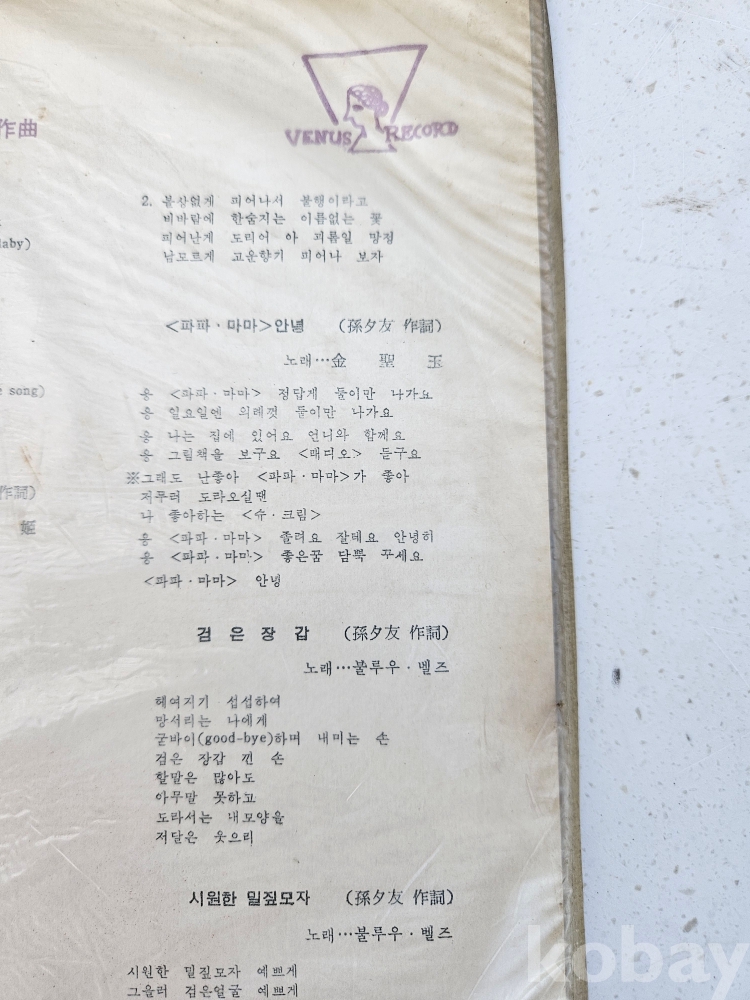 作曲
VENUS RECORD
2. 볼상없게 피어나서 불행이라고
비바람에 한숨지는 이름없는 꽃
피어난게 도리어 아 괴롬일 망정
남모르게 고운향기 피어나 보자
laby)
<파파·마마>안녕 (孫夕友 作詞)
노래…金 聖 玉
song)
응 <파파·마마> 정답게 둘이만 나가요
응 일요일엔 의례껏 둘이만 나가요
응 나는 집에 있어요 언니와 함께요
응 그림책을 보구요 <래디오> 듣구요
※그래도 난좋아 <파파·마마>가 좋아
저무러 도라오실땐
나 좋아하는 <슈·크림>
응 <파파·마마> 졸려요 잘테요 안녕히
응 <파파·마마> 좋은꿈 담뿍 꾸세요
<파파·마마> 안녕
作詞)
姬
검은장갑 (孫夕友 作詞)
노래…불루우·벨즈
헤여지기 섭섭하여
망서리는 나에게
굳바이(good-bye)하며 내미는 손
검은 장갑 낀 손
할말은 많아도
아무말 못하고
도라서는 내모양을
저달은 웃으리
시원한 밀짚모자 (孫夕友 作詞)
노래…불루우·벨즈
시원한 밀짚모자 예쁘게
그을러 검은얼굴 예쁘게
kobay